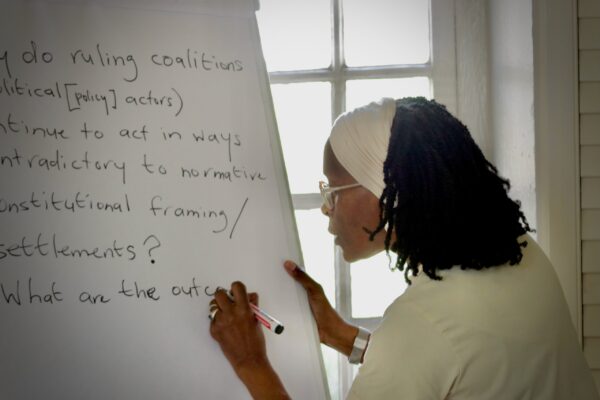 y do ruling coalitions
olitical [policy] actors)
ntinue to act in ways
ntradictory to normative
onstitutional framing/
settlements?
What are the outco